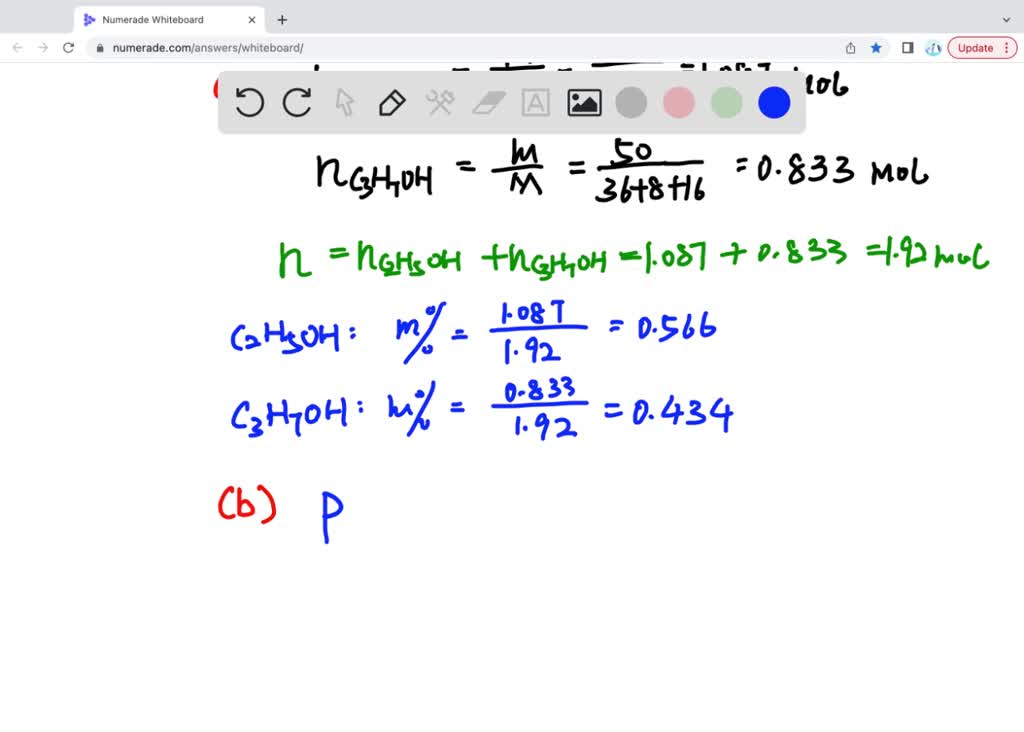 Numerade Whiteboard
numerade.com/answers/whiteboard/
Update
= 1.087 mol
nC3H7OH = m/M = 50/36+8+16 = 0.833 mol
n = nC2H5OH + nC3H7OH = 1.087 + 0.833 = 1.92 mol
C2H5OH: m% = 1.087/1.92 = 0.566
C3H7OH: m% = 0.833/1.92 = 0.434
(b) P